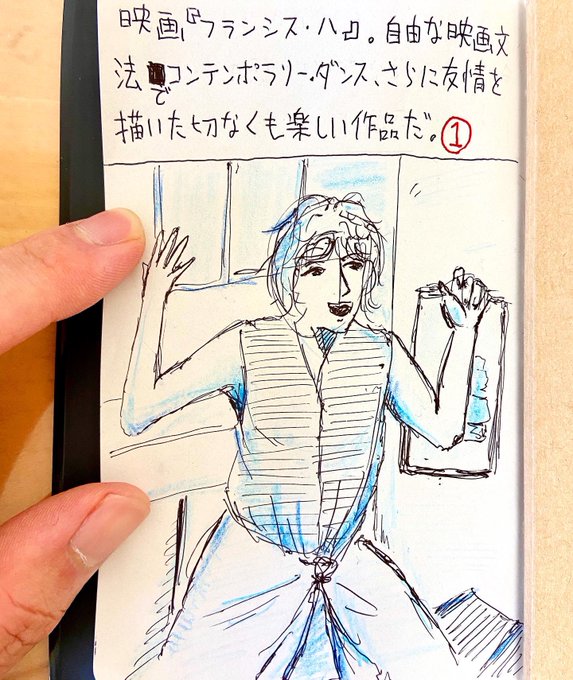 映画、『フランシス・ハ』。自由な映画文
法でコンテンポラリー・ダンス、さらに友情を
描いた切なくも楽しい作品だ。①